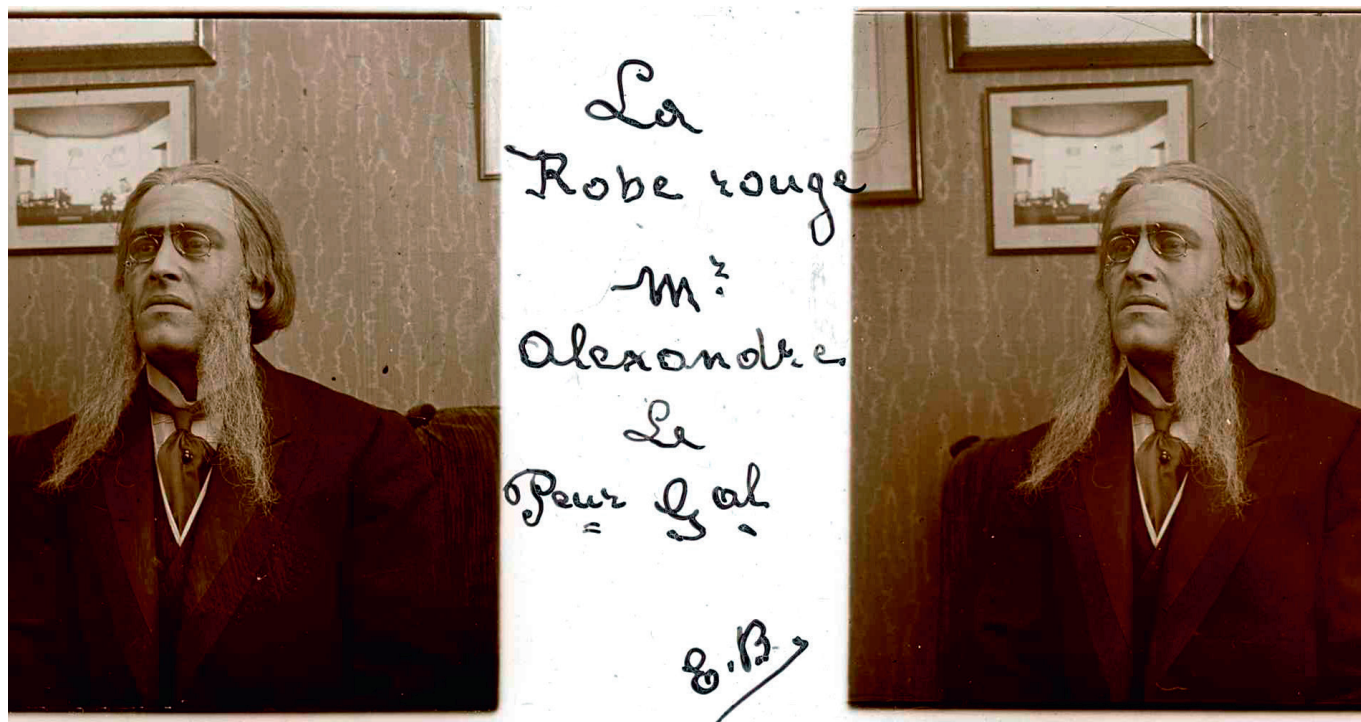 La
Robe rouge
Mr
Alexandre
Le
Peur Gal
E.B.